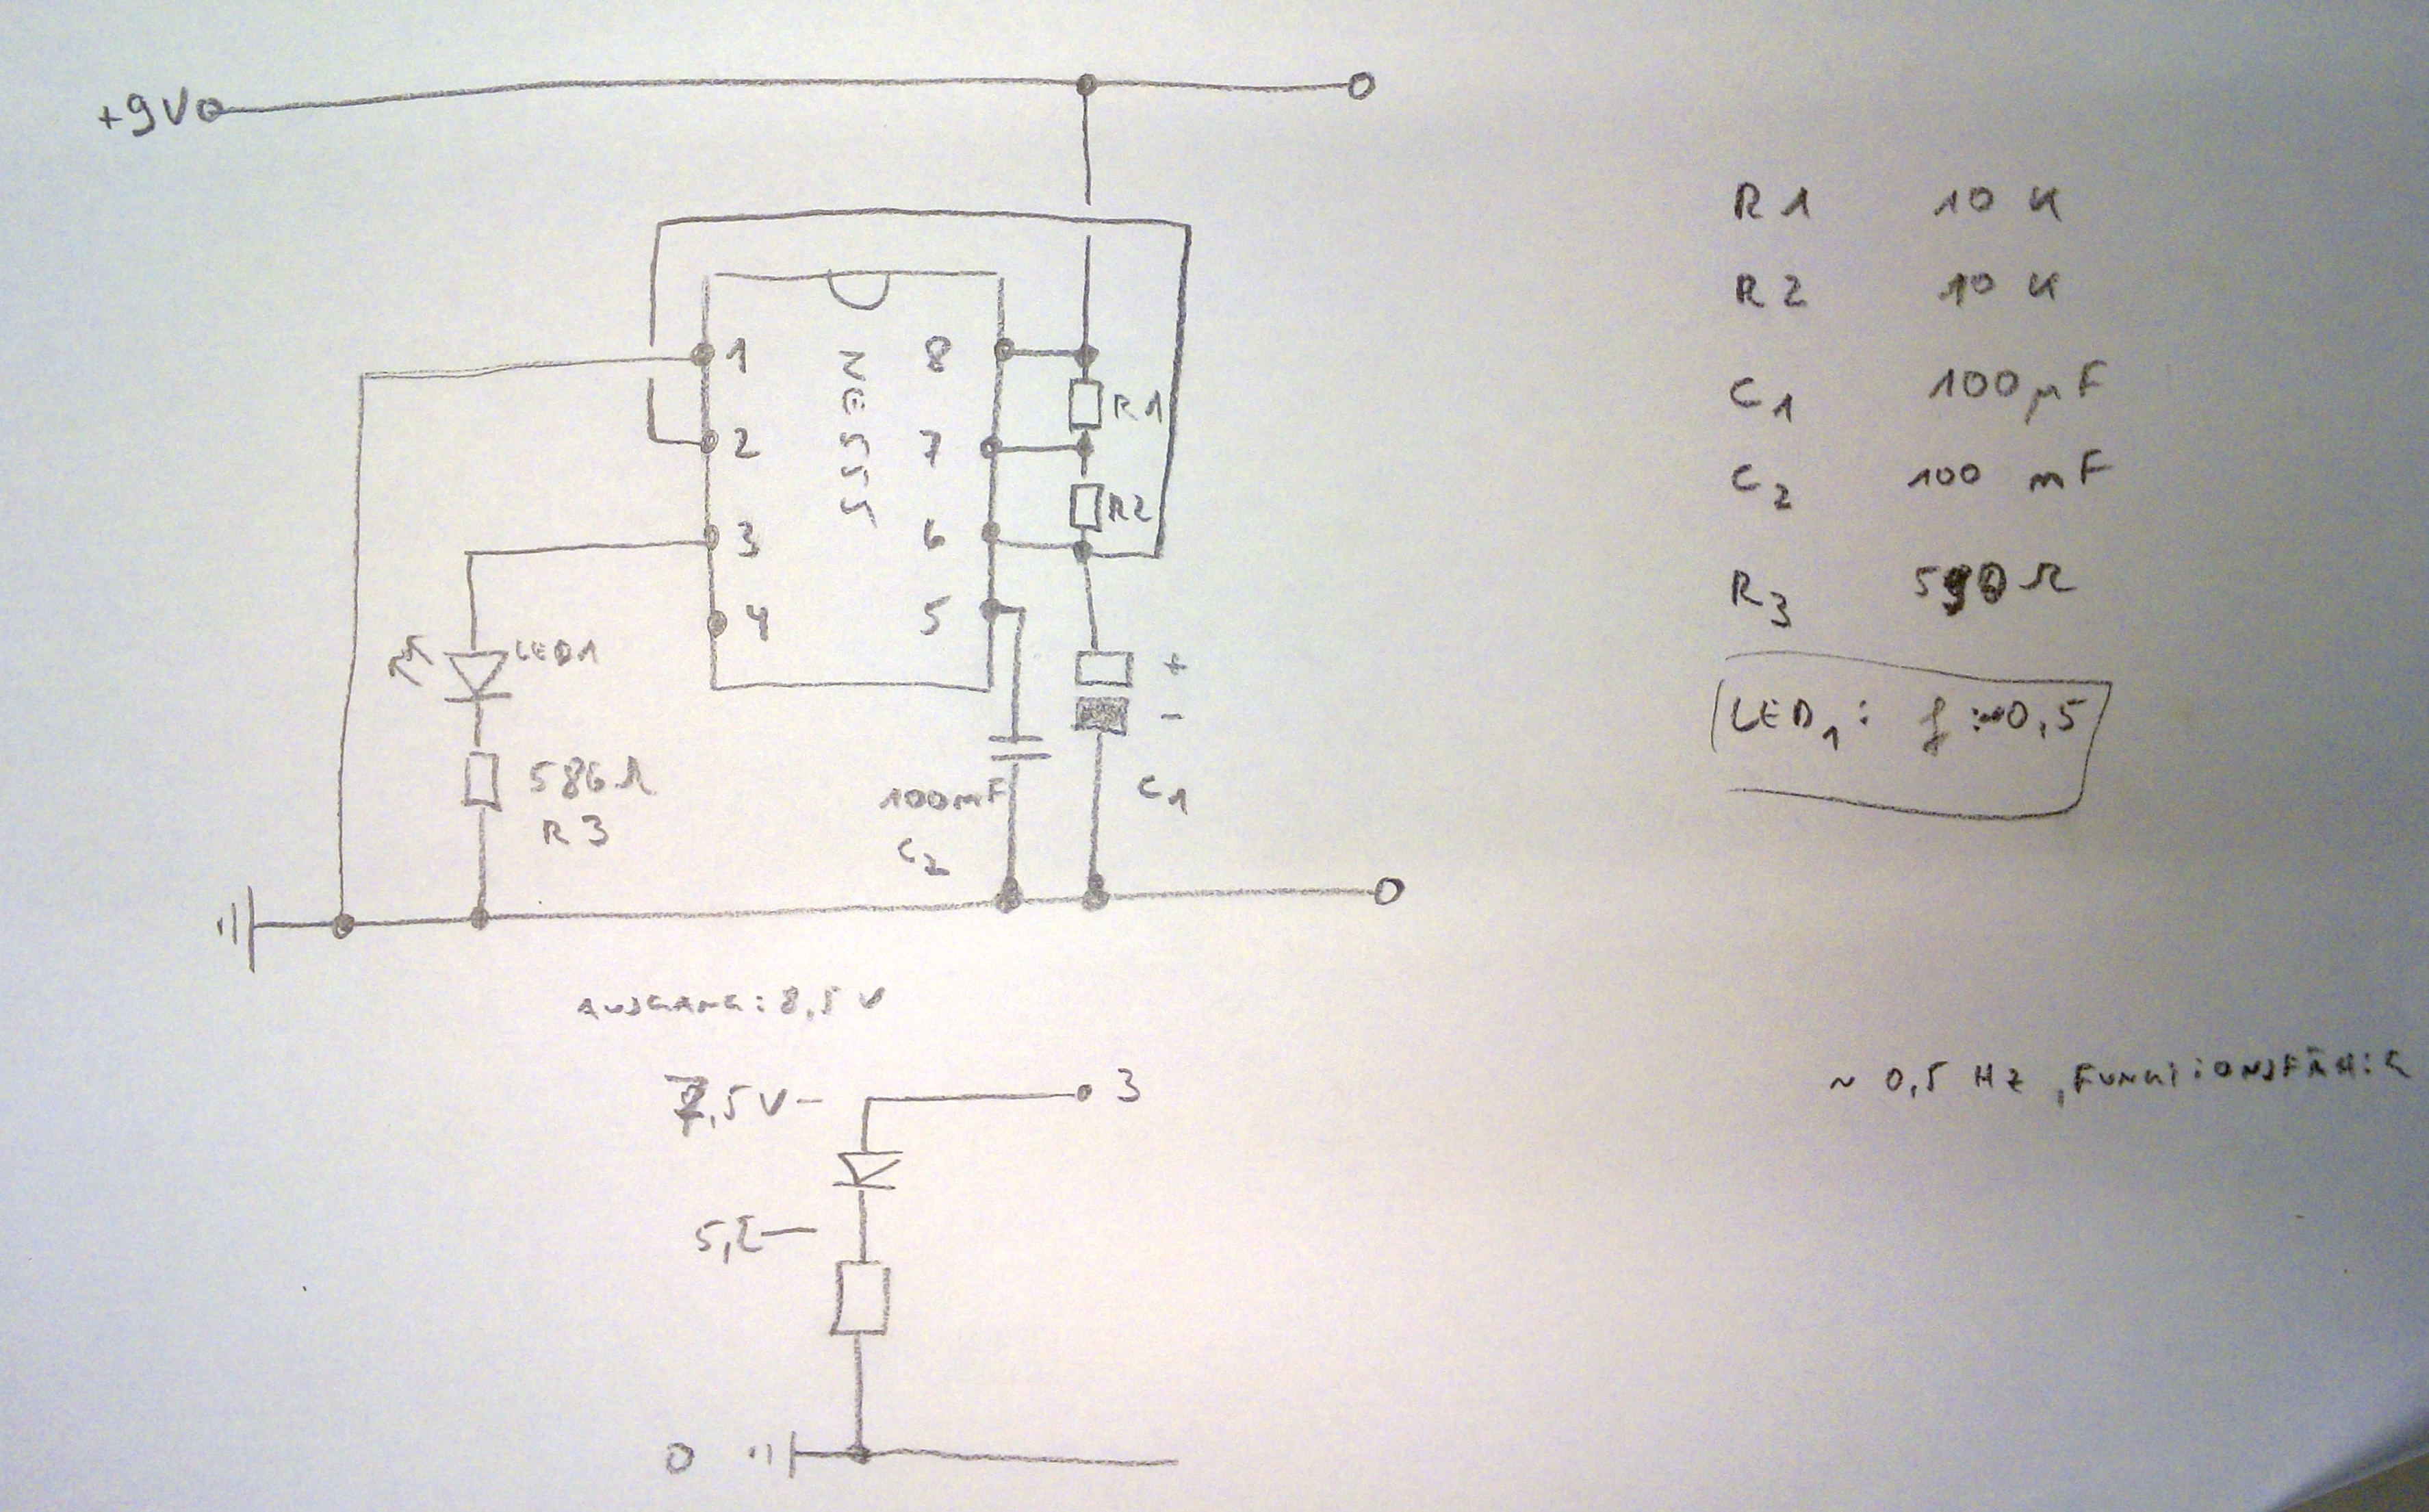 +9V
1
8
NE555
R1
2
7
R2
3
6
4
5
LED1
+
-
586Ω
R3
100nF
C2
C1
R1 10 K
R2 10 K
C1 100µF
C2 100 nF
R3 590Ω
LED1: f:~0,5
AUSGANG: 8,5 V
~ 0,5 Hz, FUNKTIONSFÄHIG
7,5V-
3
5,2-
0